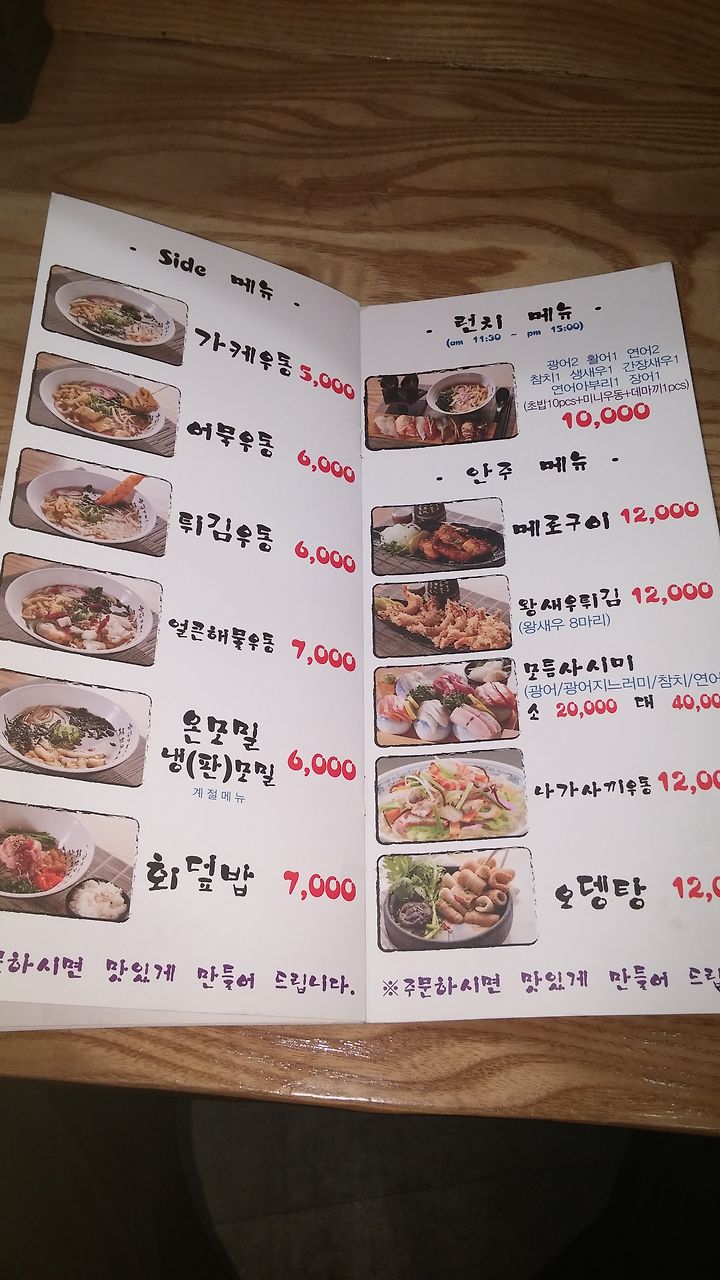 - Side 메뉴 -
가케우동 5,000
어묵우동 6,000
튀김우동 6,000
얼큰해물우동 7,000
온모밀
냉(판)모밀 6,000
계절메뉴
회덮밥 7,000
문하시면 맛있게 만들어 드립니다.
- 런치 메뉴 -
(am 11:30 ~ pm 15:00)
광어2 활어1 연어2
참치1 생새우1 간장새우1
연어아부리1 장어1
(초밥10pcs+미니우동+데마끼1pcs)
10,000
- 안주 메뉴 -
메로구이 12,000
왕새우튀김 12,000
(왕새우 8마리)
모듬사시미
(광어/광어지느러미/참치/연어
소 20,000 대 40,00
나가사끼우동 12,00
오뎅탕 12,0
※주문하시면 맛있게 만들어 드립